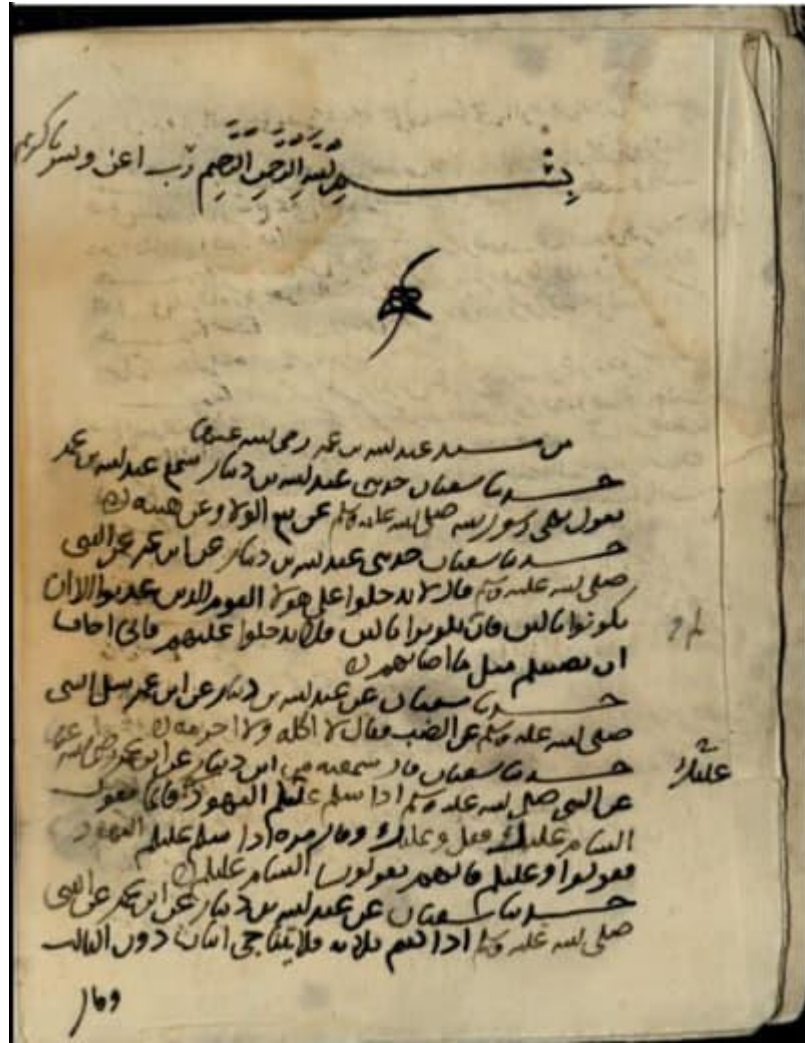 بسم الله الرحمن الرحيم رب اعن ويسر يا كريم
من مسند عبد الله بن عمر رضي الله عنهما
حدثنا سفيان حدثني عبد الله بن دينار سمع عبد الله بن عمر
يقول نهى رسول الله صلى الله عليه وسلم عن بيع الولا وعن هبته
حدثنا سفيان حدثني عبد الله بن دينار عن ابن عمر عن النبي
صلى الله عليه وسلم قال لا تدخلوا على هولا القوم الذين عذبوا الا ان
تكونوا باكين فان لم تكونوا باكين فلا تدخلوا عليهم فاني اخاف
ان يصيبكم مثل ما اصابهم
حدثنا سفيان عن عبد الله بن دينار عن ابن عمر سئل النبي
صلى الله عليه وسلم عن الضب فقال لا اكله ولا احرمه
حدثنا سفيان قال سمعته من ابن دينار عن ابن عمر رضي الله عنهما
عن النبي صلى الله عليه وسلم اذا سلم عليكم اليهود فانما يقول
عليك
السام عليك فقل وعليك وقال مرة اذا سلم عليكم اليهود
فقولوا وعليكم فانهم يقولون السام عليكم
حدثنا سفيان عن عبد الله بن دينار عن ابن عمر عن النبي
صلى الله عليه وسلم اذا كنتم ثلاثة فلا يتناجى اثنان دون الثالث
وقال